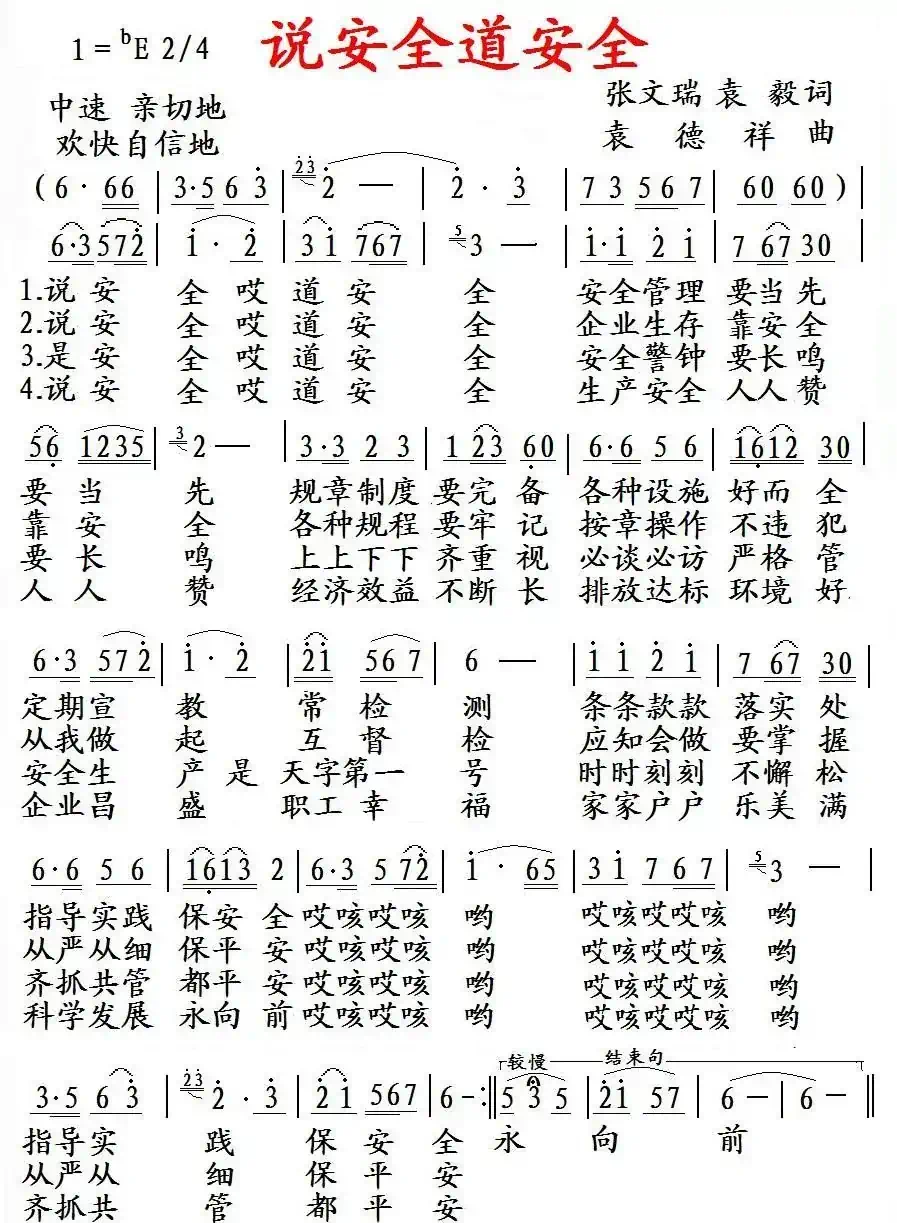 说安全道安全
1=♭E 2/4
中速 亲切地
欢快自信地
张文瑞 袁 毅词
袁 德 祥 曲
(6· 66 | 3·5 6 3̇ | 2̇3̇ 2̇ — | 2̇· 3̇ | 7 3 5 6 7 | 60 60) |
6·3 572̇ | 1̇· 2̇ | 3 1̇ 767 | 5 3 — | 1̇·1̇ 2̇ 1̇ | 7 67 30 |
1.说 安 全 哎 道 安 全 安全管理 要当先
2.说 安 全 哎 道 安 全 企业生存 靠安全
3.是 安 全 哎 道 安 全 安全警钟 要长鸣
4.说 安 全 哎 道 安 全 生产安全 人人赞
56̣ 1235 | 3 2 — | 3·3 2 3 | 1 23 6̣0 | 6·6 5 6 | 16̣12 30 |
要 当 先 规章制度 要完备 各种设施 好而全
靠 安 全 各种规程 要牢记 按章操作 不违犯
要 长 鸣 上上下下 齐重视 必谈必访 严格管
人 人 赞 经济效益 不断长 排放达标 环境好
6·3 572̇ | 1̇· 2̇ | 2̇1̇ 567 | 6 — | 1̇ 1̇ 2̇ 1̇ | 7 67 30 |
定期宣 教 常检 测 条条款款 落实处
从我做 起 互督 检 应知会做 要掌握
安全生 产 是 天字第一 号 时时刻刻 不懈松
企业昌 盛 职工幸 福 家家户户 乐美满
6·6 5 6 | 16̣13 2 | 6·3 572̇ | 1̇· 65 | 3 1̇ 767 | 5 3 — |
指导实践 保安全 哎咳哎咳 哟 哎咳哎哎咳 哟
从严从细 保平安 哎咳哎咳 哟 哎咳哎哎咳 哟
齐抓共管 都平安 哎咳哎咳 哟 哎咳哎哎咳 哟
科学发展 永向前 哎咳哎咳 哟 哎咳哎哎咳 哟
较慢 结束句
3·5 6 3̇ | 2̇3̇ 2̇· 3̇ | 2̇ 1̇ 567 | 6 - :‖ 5 3 5 | 2̇1̇ 57 | 6 — | 6 — ‖
指导实 践 保 安 全 永 向 前
从严从 细 保 平 安
齐抓共 管 都 平 安